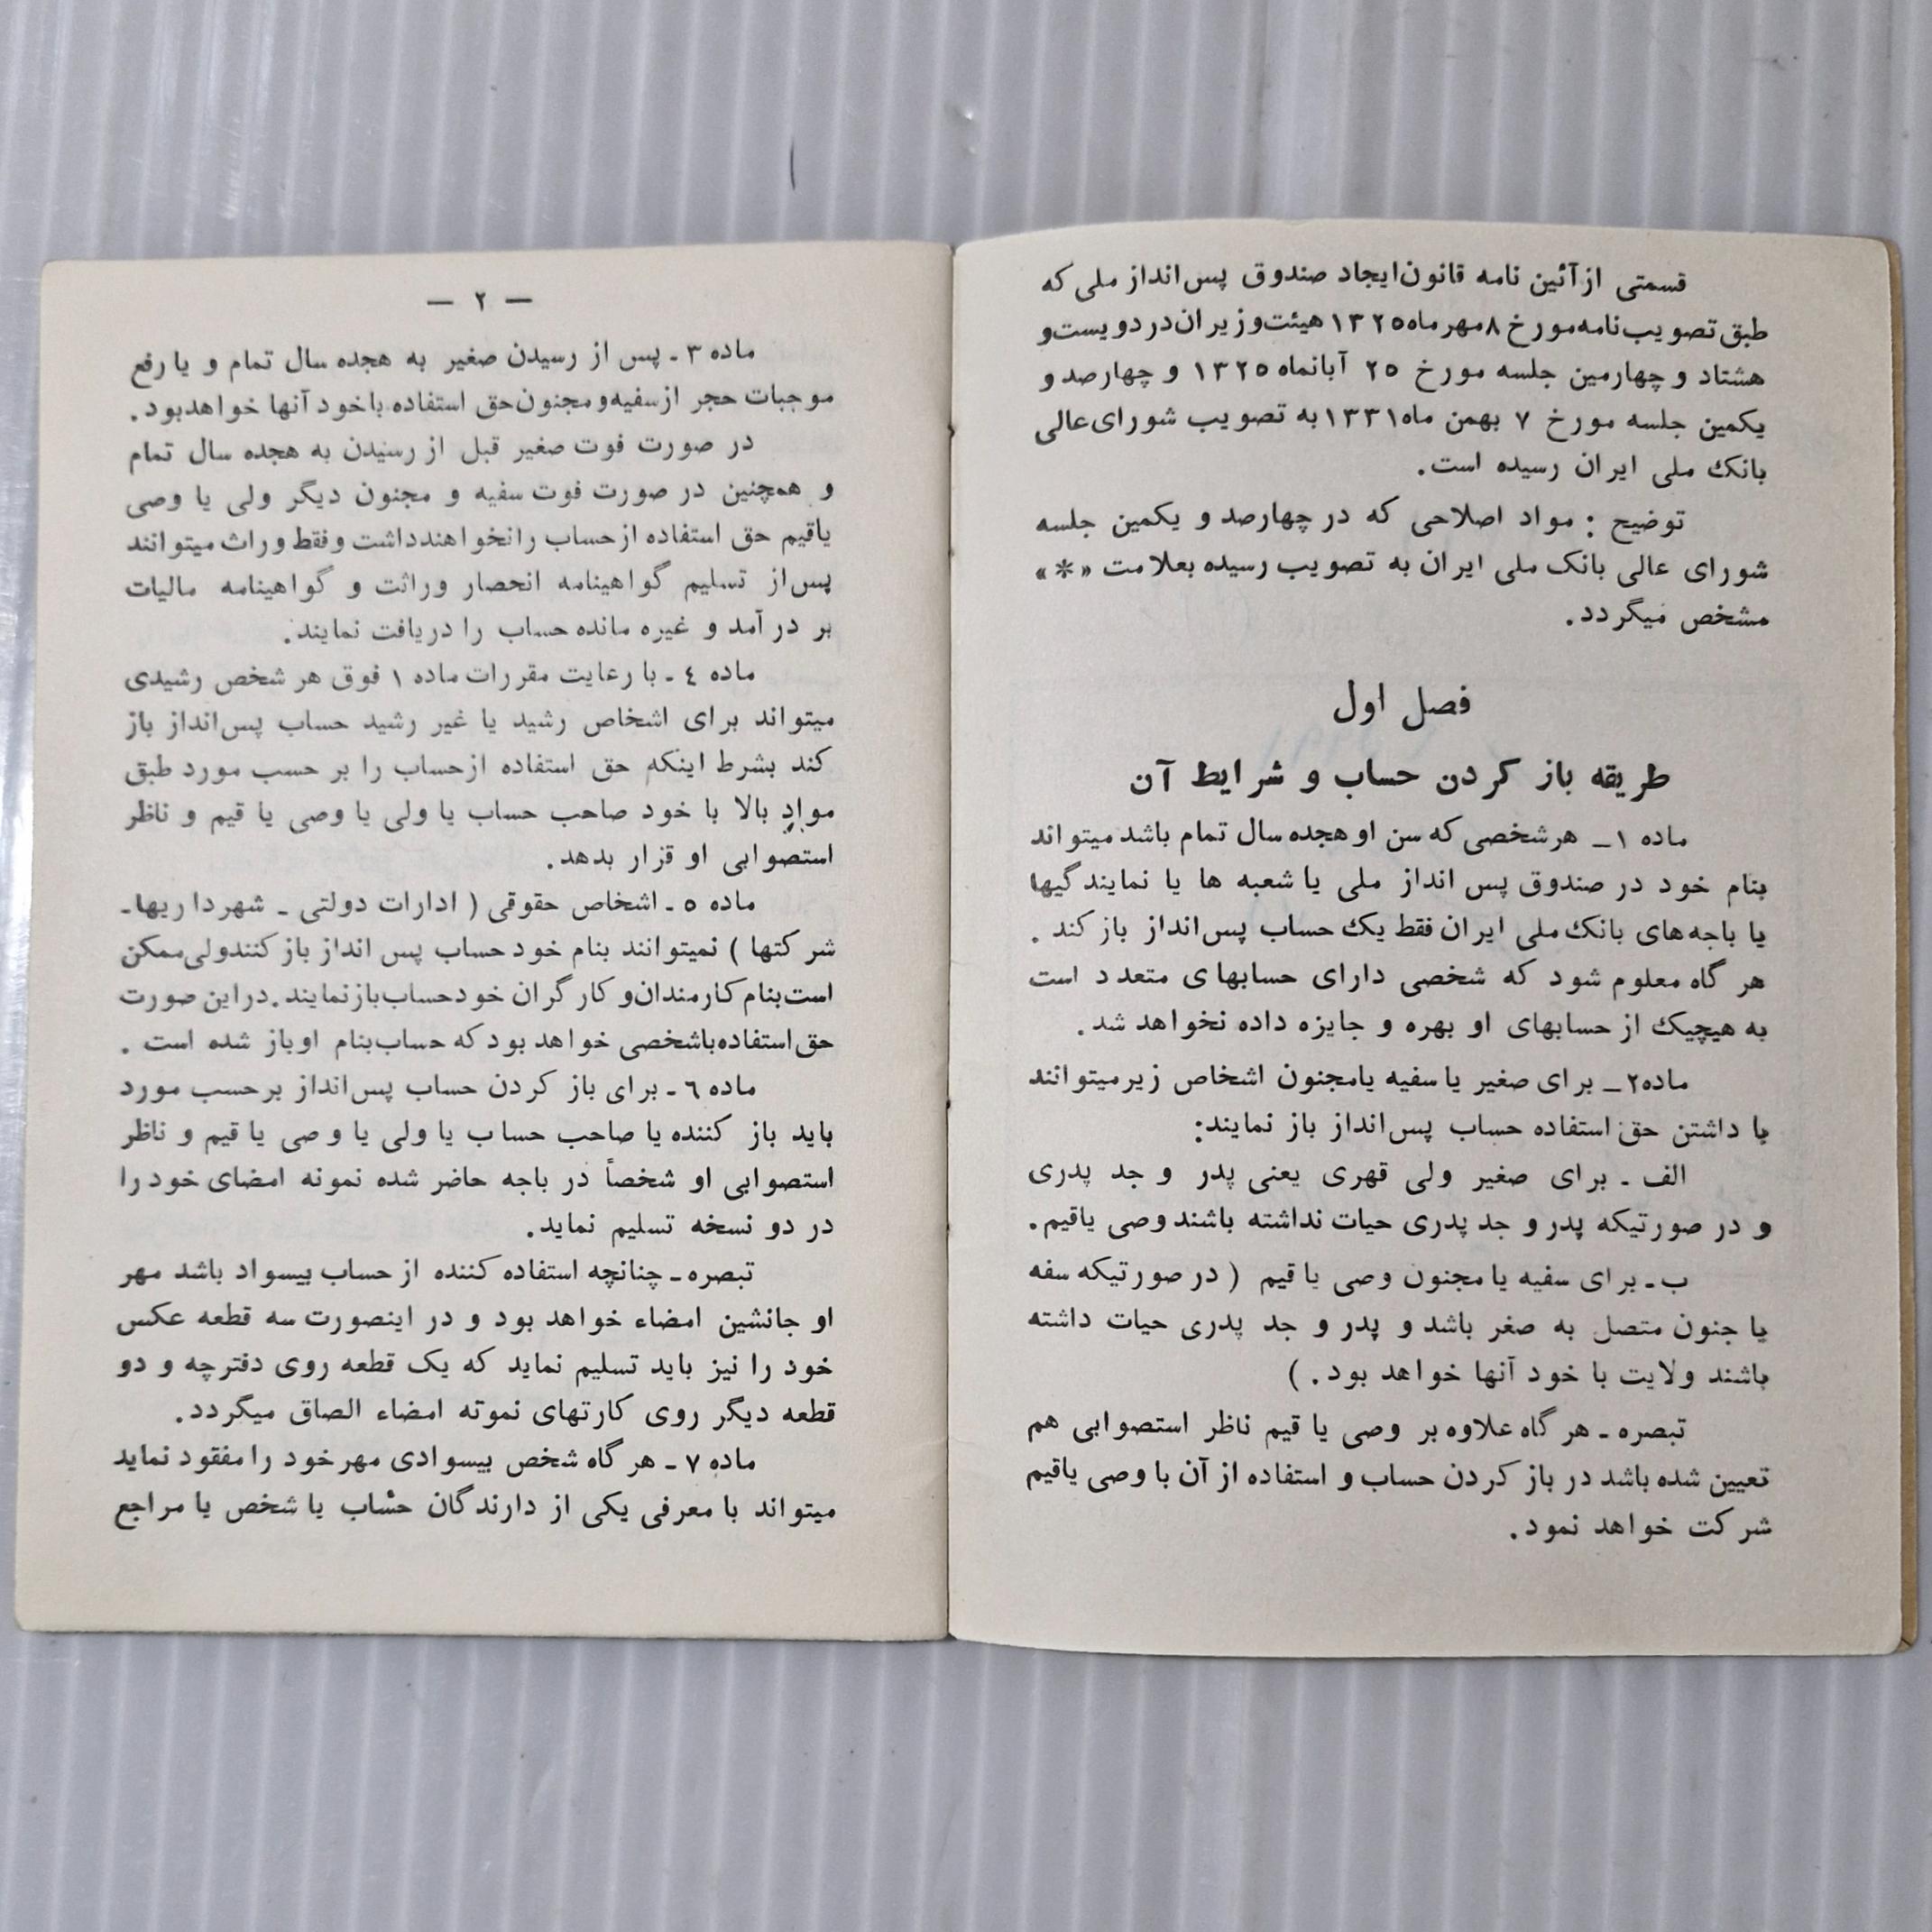 قسمتی از آئین نامه قانون ایجاد صندوق پس‌انداز ملی که
طبق تصویب‌نامه مورخ ۸ مهر ماه ۱۳۲۵ هیئت وزیران در دویست و
هشتاد و چهارمین جلسه مورخ ۲۵ آبانماه ۱۳۲۵ و چهارصد و
یکمین جلسه مورخ ۷ بهمن ماه ۱۳۳۱ به تصویب شورای عالی
بانک ملی ایران رسیده است.
توضیح : مواد اصلاحی که در چهارصد و یکمین جلسه
شورای عالی بانک ملی ایران به تصویب رسیده بعلامت «*»
مشخص میگردد.
فصل اول
طریقه باز کردن حساب و شرایط آن
ماده ۱ـ هر شخصی که سن او هجده سال تمام باشد میتواند
بنام خود در صندوق پس انداز ملی یا شعبه ها یا نمایندگیها
یا باجه‌های بانک ملی ایران فقط یک حساب پس‌انداز باز کند .
هر گاه معلوم شود که شخصی دارای حسابهای متعدد است
به هیچیک از حسابهای او بهره و جایزه داده نخواهد شد.
ماده ۲ـ برای صغیر یا سفیه یا مجنون اشخاص زیر میتوانند
با داشتن حق استفاده حساب پس‌انداز باز نمایند:
الف ـ برای صغیر ولی قهری یعنی پدر و جد پدری
و در صورتیکه پدر و جد پدری حیات نداشته باشند وصی یاقیم.
ب ـ برای سفیه یا مجنون وصی یا قیم ( در صورتیکه سفه
یا جنون متصل به صغر باشد و پدر و جد پدری حیات داشته
باشند ولایت با خود آنها خواهد بود. )
تبصره ـ هر گاه علاوه بر وصی یا قیم ناظر استصوابی هم
تعیین شده باشد در باز کردن حساب و استفاده از آن با وصی یاقیم
شرکت خواهد نمود.
— ۲ —
ماده ۳ ـ پس از رسیدن صغیر به هجده سال تمام و یا رفع
موجبات حجر از سفیه و مجنون حق استفاده با خود آنها خواهد بود.
در صورت فوت صغیر قبل از رسیدن به هجده سال تمام
و همچنین در صورت فوت سفیه و مجنون دیگر ولی یا وصی
یاقیم حق استفاده از حساب را نخواهند داشت و فقط وراث میتوانند
پس از تسلیم گواهینامه انحصار وراثت و گواهینامه مالیات
بر در آمد و غیره مانده حساب را دریافت نمایند.
ماده ٤ ـ با رعایت مقررات ماده ۱ فوق هر شخص رشیدی
میتواند برای اشخاص رشید یا غیر رشید حساب پس‌انداز باز
کند بشرط اینکه حق استفاده از حساب را بر حسب مورد طبق
مواد بالا با خود صاحب حساب یا ولی یا وصی یا قیم و ناظر
استصوابی او قرار بدهد.
ماده ٥ ـ اشخاص حقوقی ( ادارات دولتی ـ شهرداریها ـ
شرکتها ) نمیتوانند بنام خود حساب پس انداز باز کنند ولی ممکن
است بنام کارمندان و کارگران خود حساب باز نمایند. در این صورت
حق استفاده با شخصی خواهد بود که حساب بنام او باز شده است .
ماده ٦ ـ برای باز کردن حساب پس‌انداز بر حسب مورد
باید باز کننده یا صاحب حساب یا ولی یا وصی یا قیم و ناظر
استصوابی او شخصاً در باجه حاضر شده نمونه امضای خود را
در دو نسخه تسلیم نماید.
تبصره ـ چنانچه استفاده کننده از حساب بیسواد باشد مهر
او جانشین امضاء خواهد بود و در اینصورت سه قطعه عکس
خود را نیز باید تسلیم نماید که یک قطعه روی دفترچه و دو
قطعه دیگر روی کارتهای نمونه امضاء الصاق میگردد.
ماده ۷ ـ هر گاه شخص بیسوادی مهر خود را مفقود نماید
میتواند با معرفی یکی از دارندگان حساب یا شخص یا مراجع